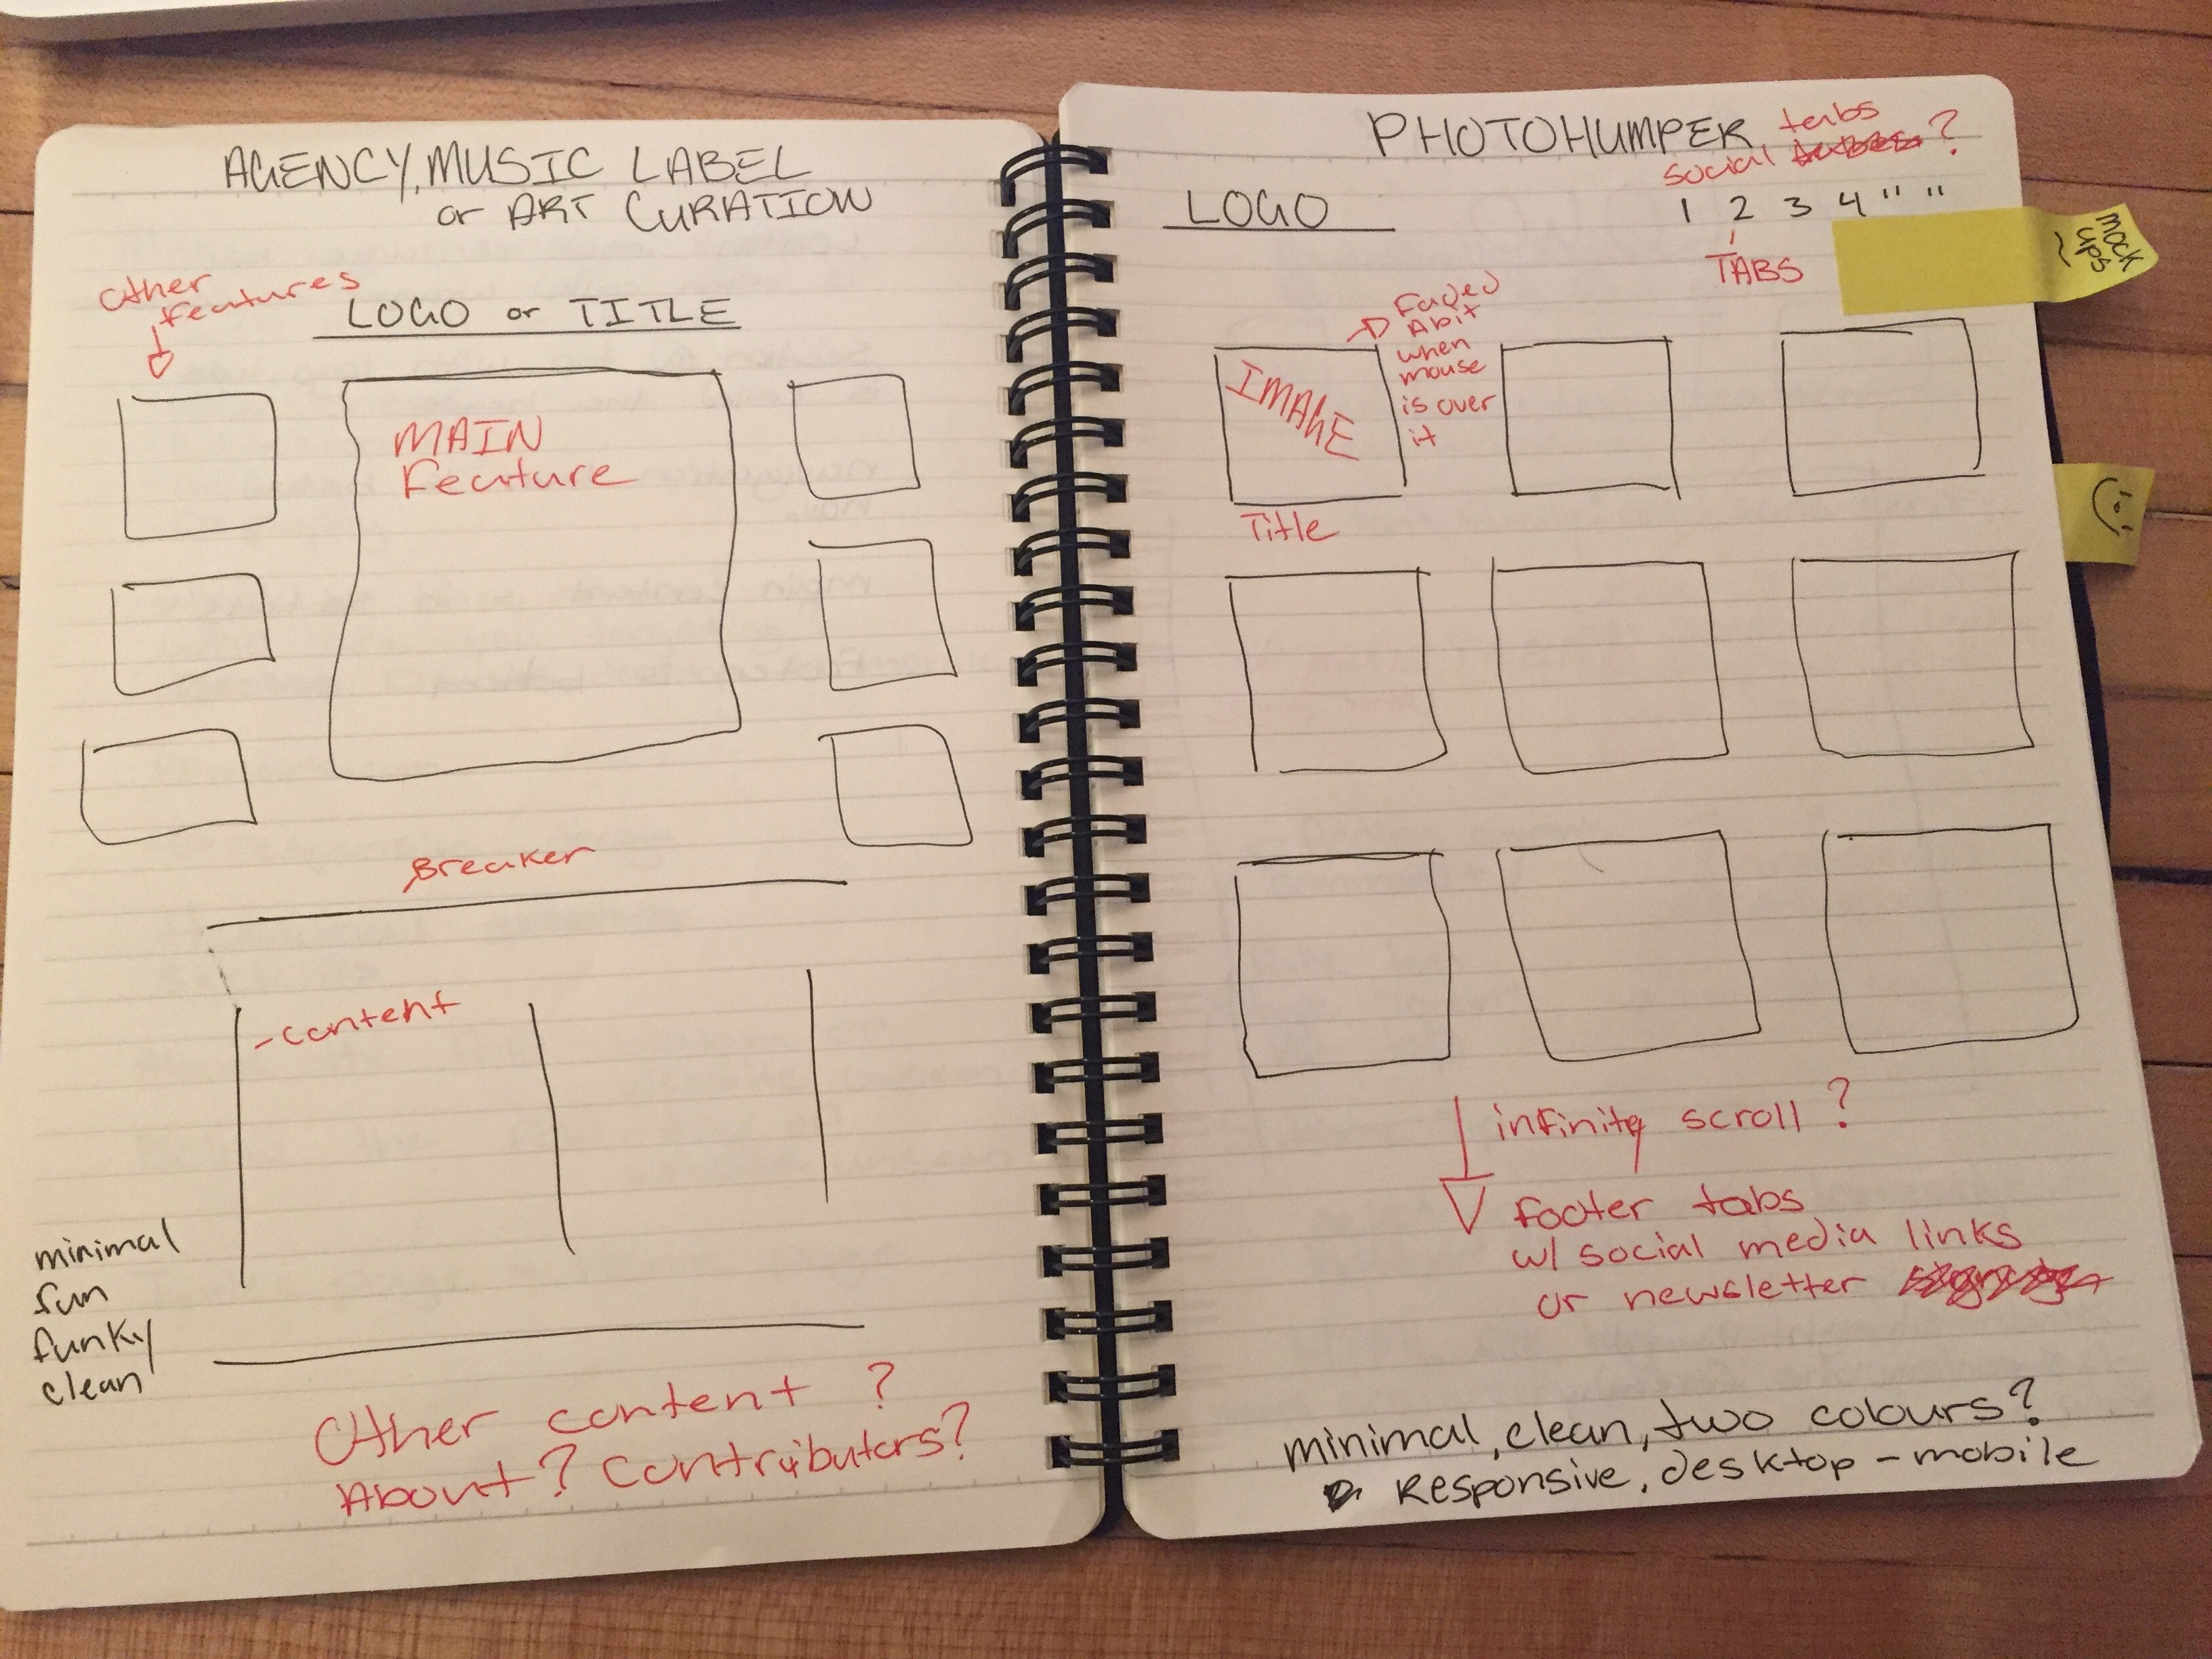 AGENCY, MUSIC LABEL
or ART CURATION
other
features
LOGO or TITLE
MAIN
Feature
Breaker
- content
minimal
fun
funky
clean
Other content ?
About? Contributors?
PHOTOHUMPER
tabs
social ?
1 2 3 4 " "
TABS
mock
ups
LOGO
Faded
A bit
when
mouse
is over
it
IMAGE
Title
infinity scroll ?
footer tabs
w/ social media links
or newsletter
minimal, clean, two colours?
Responsive, desktop - mobile